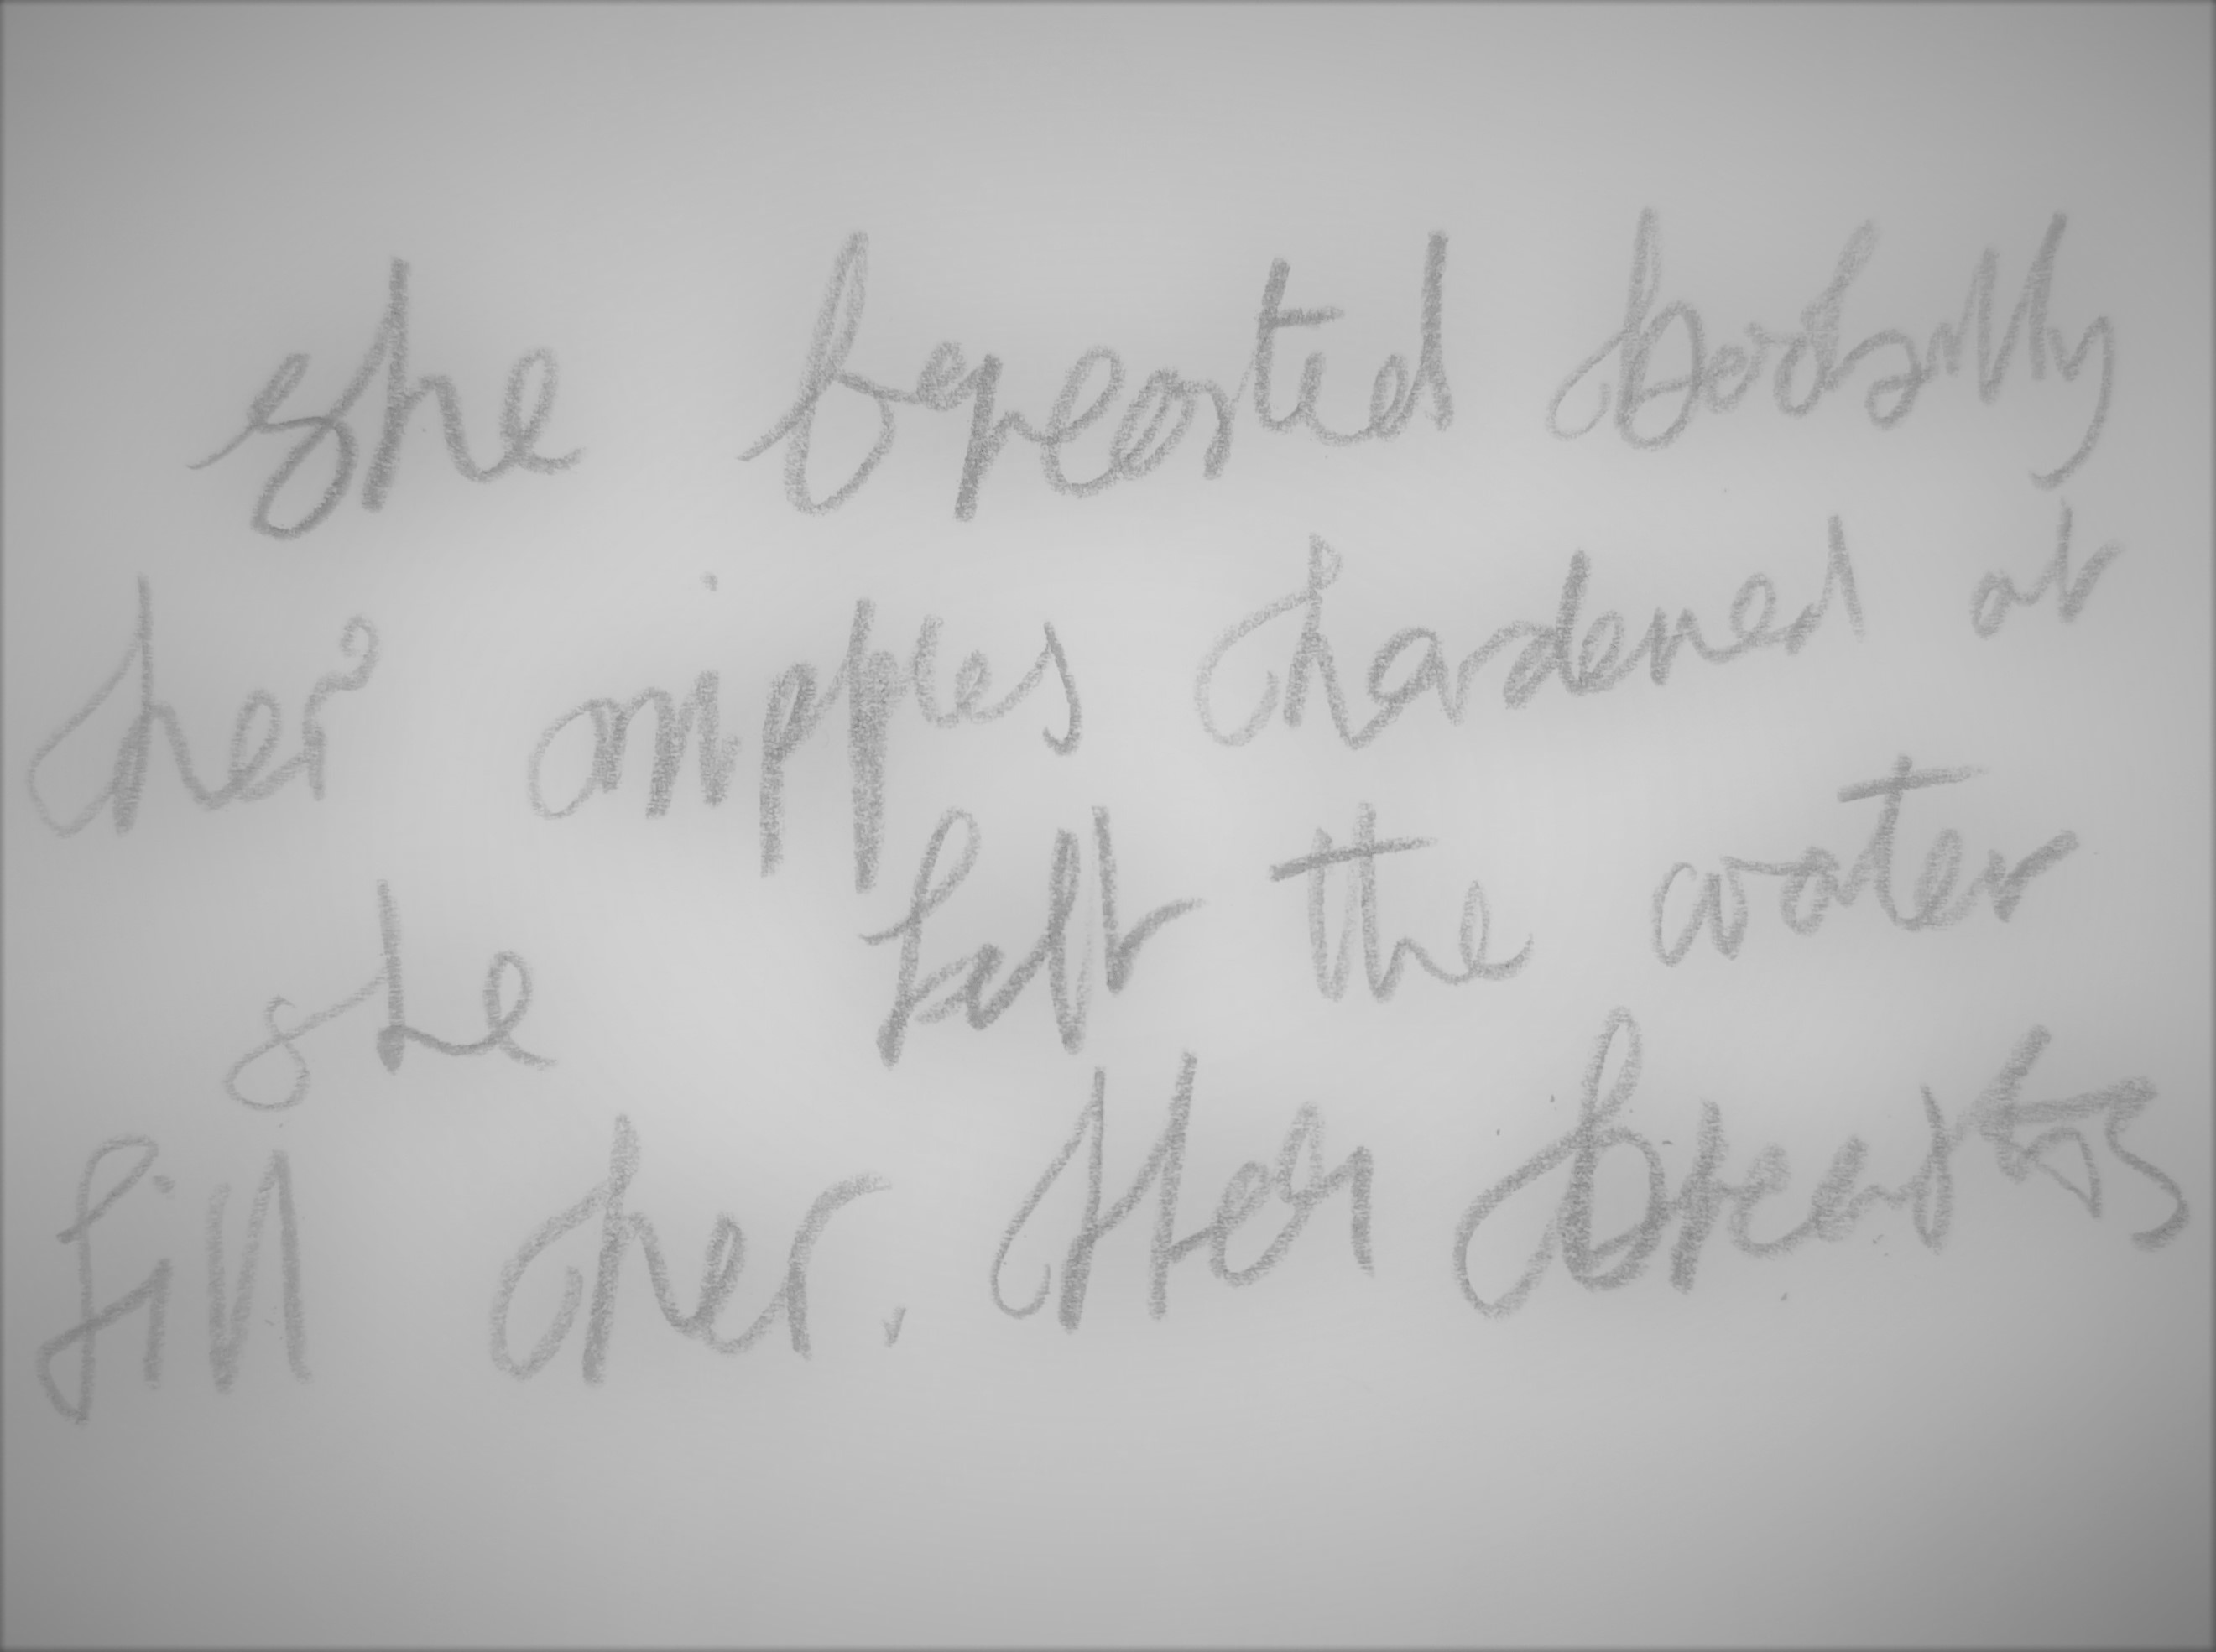 she breasted boobily
her nipples hardened at
she felt the water
fill her. Her breasts